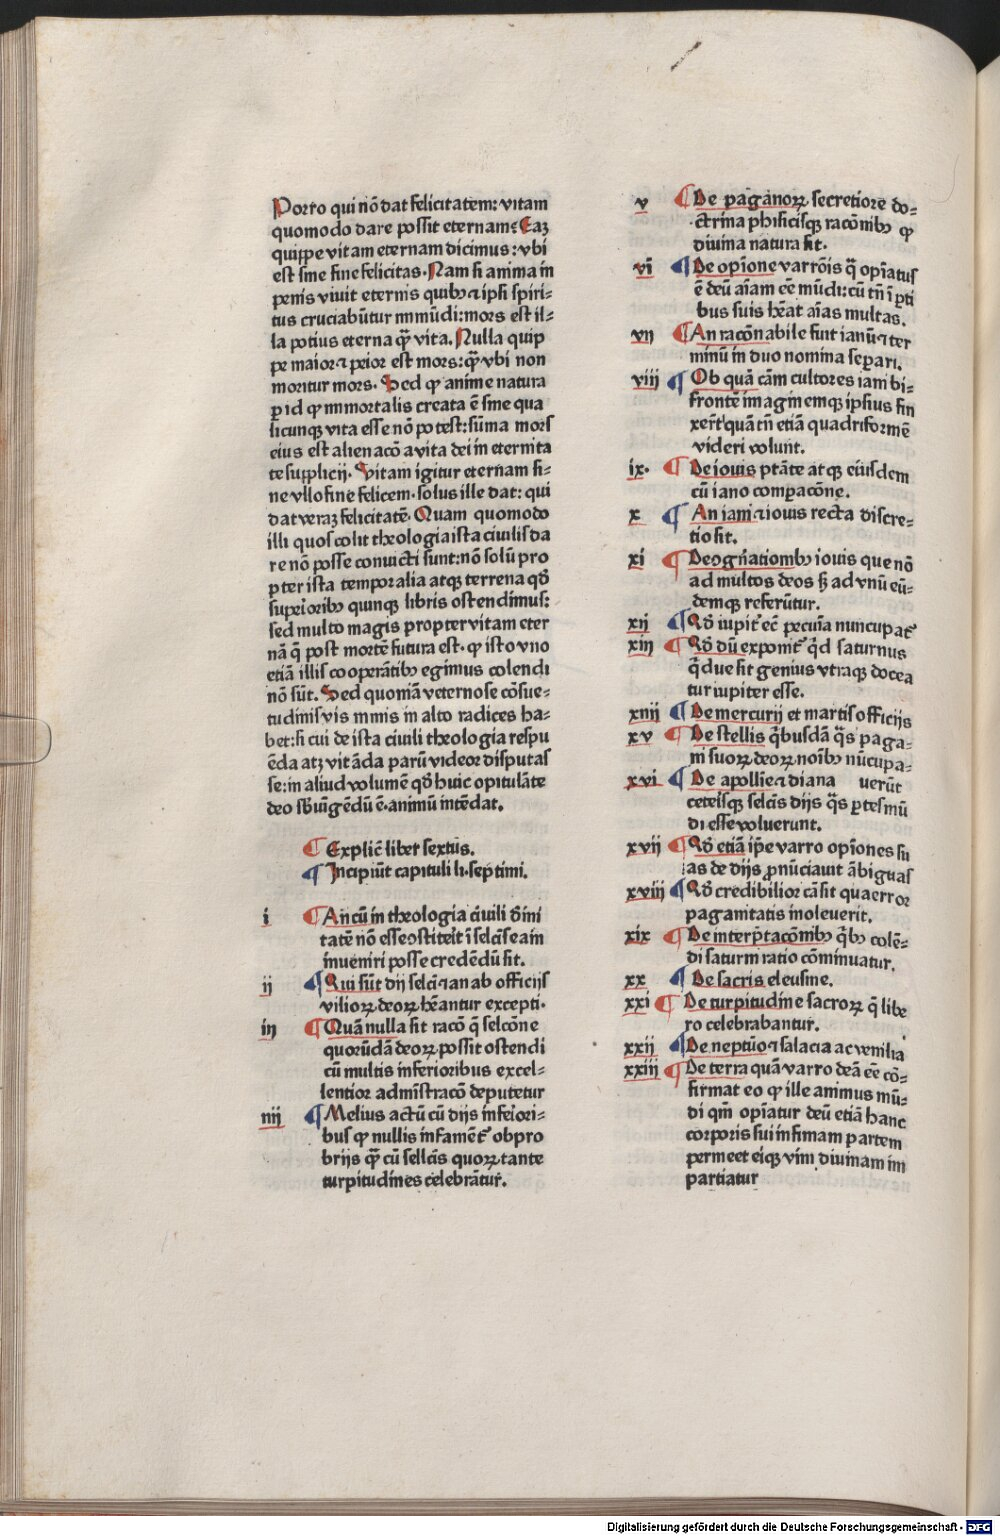 Porro qui nō dat felicitatem: vitam
quomodo dare possit eternam? Eaꝫ
quippe vitam eternam dicimus: vbi
est sine fine felicitas. Nam si anima in
penis viuit eternis quibꝰ ⁊ ipsi spiri⸗
tus cruciabūtur inmūdi: mors est il⸗
la potius eterna q̄ꝫ vita. Nulla quip
pe maior ⁊ peior est mors: q̄ꝫ vbi non
moritur mors. Sed ꝙ anime natura
ꝑ id ꝙ inmortalis creata ē sine qua
licunqꝫ vita esse nō potest: sūma mors
eius est alienacō a vita dei in eternita
te supplicij. Vitam igitur eternam si⸗
ne vllo fine felicem. solus ille dat: qui
dat veraꝫ felicitatē. Quam quomodo
illi quos colit theologia ista ciuilis da
re nō posse conuicti sunt: nō solū pro
pter ista temporalia atqꝫ terrena qd̄
superioribꝰ quinqꝫ libris ostendimus:
sed multo magis propter vitam eter
nā q̄ post mortē futura est. ꝙ isto vno
etiā illis cooperātibꝰ egimus colendi
nō sūt. Sed quoniā veternose cōsue⸗
tudinis vis nimis in alto radices ha⸗
bet: si cui de ista ciuili theologia respu
ēda atqꝫ vitāda parū videor disputas
se: in aliud volumē qd̄ huic opitulāte
deo sb̄iūgēdū ē. animū intēdat.
¶ Explic̄ liber sextus.
¶ Incipiūt capituli li. septimi.
i ¶ An cū in theologia ciuili d̄ini
tatē nō esse ꝯstiterit ī selcīs eam
inueniri posse credēdū sit.
ij ¶ Qui sūt dij selcī ⁊ an ab officijs
vilioꝝ deoꝝ hēantur excepti.
iij ¶ Quā nulla sit racō q̄ selcōne
quorūdā deoꝝ possit ostendi
cū multis inferioribus excel⸗
lentior admīstracō deputetur
iiij ¶ Melius actū cū dijs inferiori⸗
bus ꝙ nullis infament᷑ obpro
brijs q̄ꝫ cū sellcīs quoꝝ tante
turpitudines celebrātur.
v ¶ De paganoꝝ secretiore do⸗
ctrina phisicisqꝫ racōnibꝰ ꝙ
diuina natura sit.
vi ¶ De opīone varrōis q̄ opīatus
ē deū aīam eē mūdi: cū tn̄ ī ꝑti
bus suis hēat aīas multas.
vij ¶ An racōnabile sint ianū ⁊ ter
minū in duo nomina separi.
viij ¶ Ob quā cām cultores iam bi⸗
frontē imaginemqꝫ ipsius fin
xer̄t quā tn̄ etiā quadriformē
videri volunt.
ix. ¶ De iouis ptāte atqꝫ eiusdem
cū iano compacōne.
x ¶ An iani ⁊ iouis recta discre⸗
tio sit.
xi ¶ De ꝯgn̄atiombꝰ iouis que nō
ad multos deos sꝫ ad vnū eū⸗
demqꝫ referūtur.
xij ¶ Qd̄ iupit᷑ ec̄ pecūia nuncupat᷑
xiij ¶ Qd̄ dū exponit᷑ q̄d saturnus
q̄d ue sit genius vtraqꝫ docea
tur iupiter esse.
xiiij ¶ De mercurij et martis officijs
xv ¶ De stellis q̄busdā q̄s paga⸗
ni suoꝝ deoꝝ noībꝰ nūcupa⸗
xvi ¶ De apollīe ⁊ diana uerūt
ceterisqꝫ selcīs dijs q̄s ꝑtes mū
di esse voluerunt.
xvij ¶ Qd̄ etiā ip̄e varro opīones su
as de dijs ꝓnūciauit ābiguas
xviij ¶ Qd̄ credibilior cā sit qua error
paganitatis inoleuerit.
xix ¶ De interp̄tacōnibꝰ q̄bꝰ colē⸗
di saturni ratio cōminuatur.
xx ¶ De sacris eleusine.
xxi ¶ De turpitudine sacroꝝ q̄ libe
ro celebrabantur.
xxij ¶ De neptūo ⁊ salacia ac venilia
xxiij ¶ De terra quā varro deā eē cō⸗
firmat eo ꝙ ille animus mū⸗
di quē opīatur deū etiā hanc
corporis sui infimam partem
permeet eiqꝫ vim diuinam im
partiatur
Digitalisierung gefördert durch die Deutsche Forschungsgemeinschaft - DFG